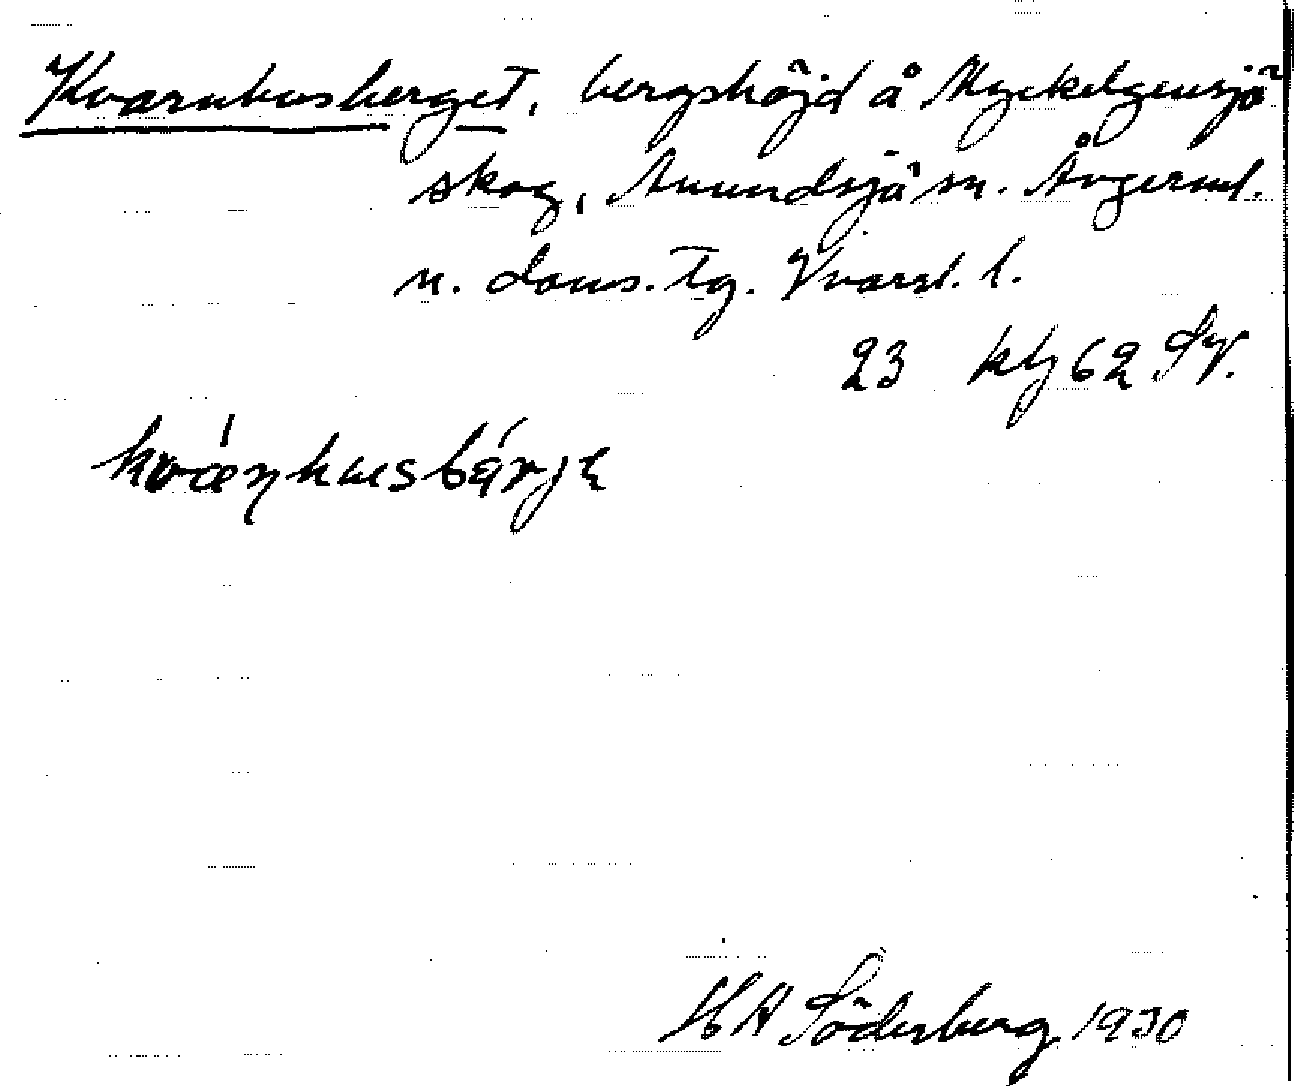 Kvarnhusberget, bergshöjd å Myckelgensjö
skog, Anundsjö sn. Ångerml.
n. doms. Tg. Vvarsl. l.
23 kbl 62 SV.
kvæṇhusbǽrjə
H A Söderberg 1930